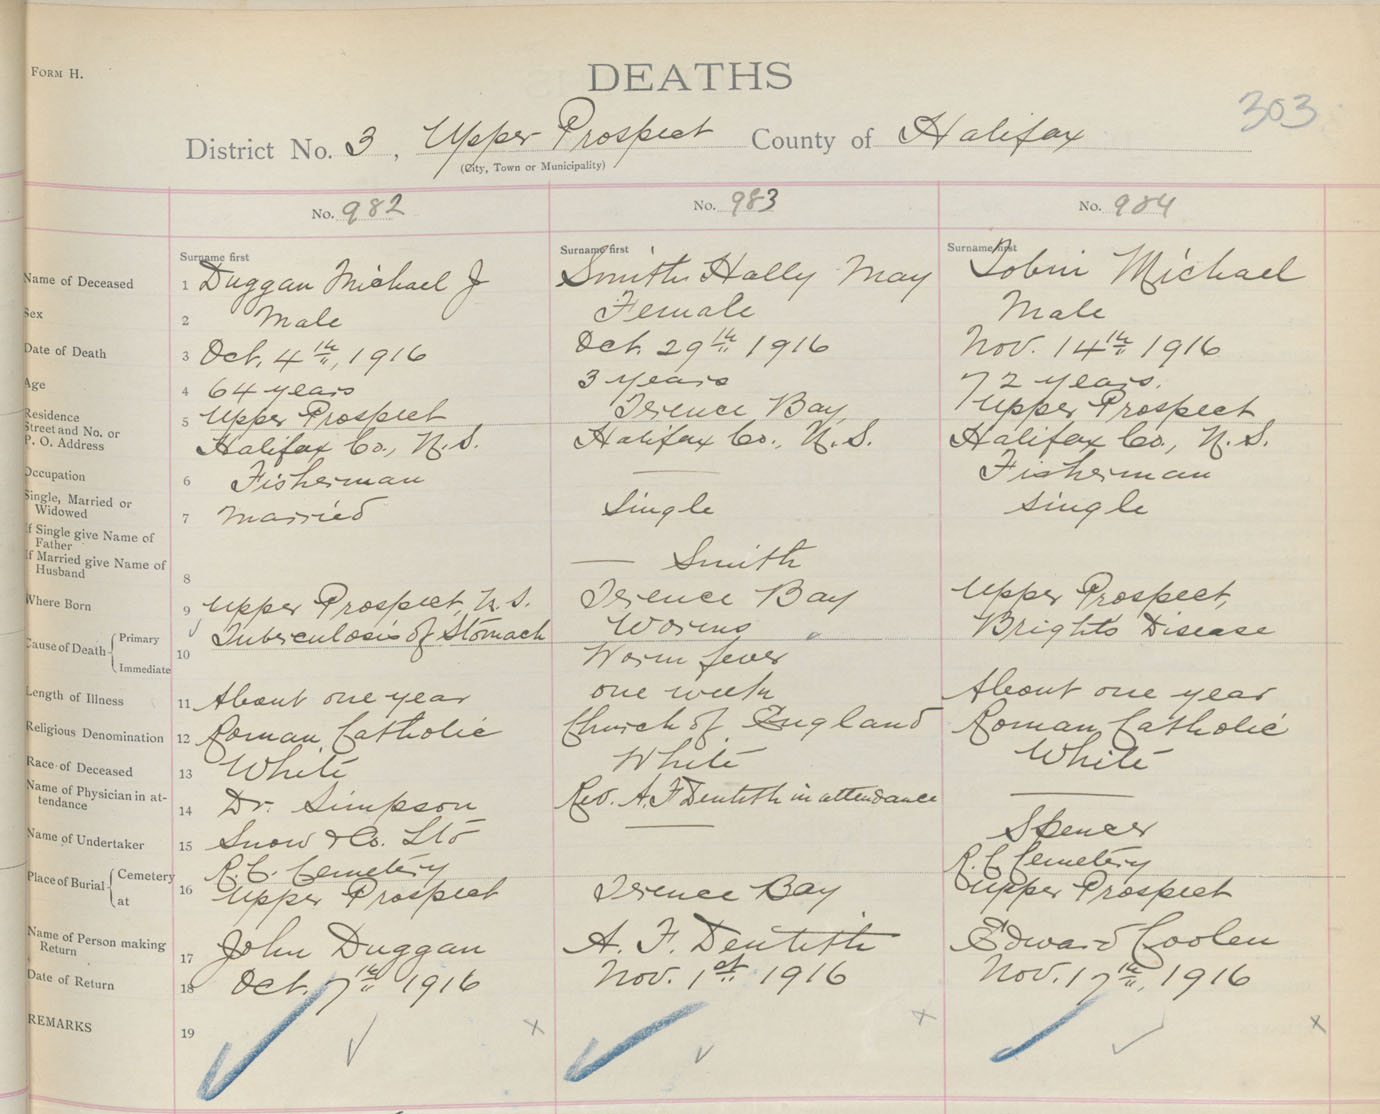 FORM H.
DEATHS
303
District No. 3, Upper Prospect County of Halifax
(City, Town or Municipality)
No. 982
No. 983
No. 984
Surname first
Surname first
Surname first
Name of Deceased
1 Duggan Michael J
Smith Hally May
Tobin Michael
Sex
2 Male
Female
Male
Date of Death
3 Oct. 4th, 1916
Oct. 29th 1916
Nov. 14th 1916
Age
4 64 years
3 years
72 years.
Residence
Street and No. or
P. O. Address
5 Upper Prospect
Halifax Co., N.S.
Terence Bay
Halifax Co., N.S.
Upper Prospect
Halifax Co., N.S.
Occupation
6 Fisherman
—
Fisherman
Single, Married or
Widowed
7 Married
Single
Single
If Single give Name of
Father
If Married give Name of
Husband
8
— Smith
Where Born
9 Upper Prospect, N.S.
Terence Bay
Upper Prospect,
Cause of Death { Primary
Immediate
10
Tuberculosis of Stomach
Worms
Worm fever
Bright's Disease
Length of Illness
11 About one year
one week
About one year
Religious Denomination
12 Roman Catholic
Church of England
Roman Catholic
Race of Deceased
13 White
White
White
Name of Physician in at-
tendance
14 Dr. Simpson
Rev. A. F Dentith in attendance
—
Name of Undertaker
15 Snow & Co. Ltd
—
Spencer
Place of Burial { Cemetery
at
16
R. C. Cemetery
Upper Prospect
Terence Bay
R. C Cemetery
Upper Prospect
Name of Person making
Return
17 John Duggan
A. F. Dentith
Edward Coolen
Date of Return
18 Oct. 7th 1916
Nov. 1st 1916
Nov. 17th, 1916
REMARKS
19
x
x
x